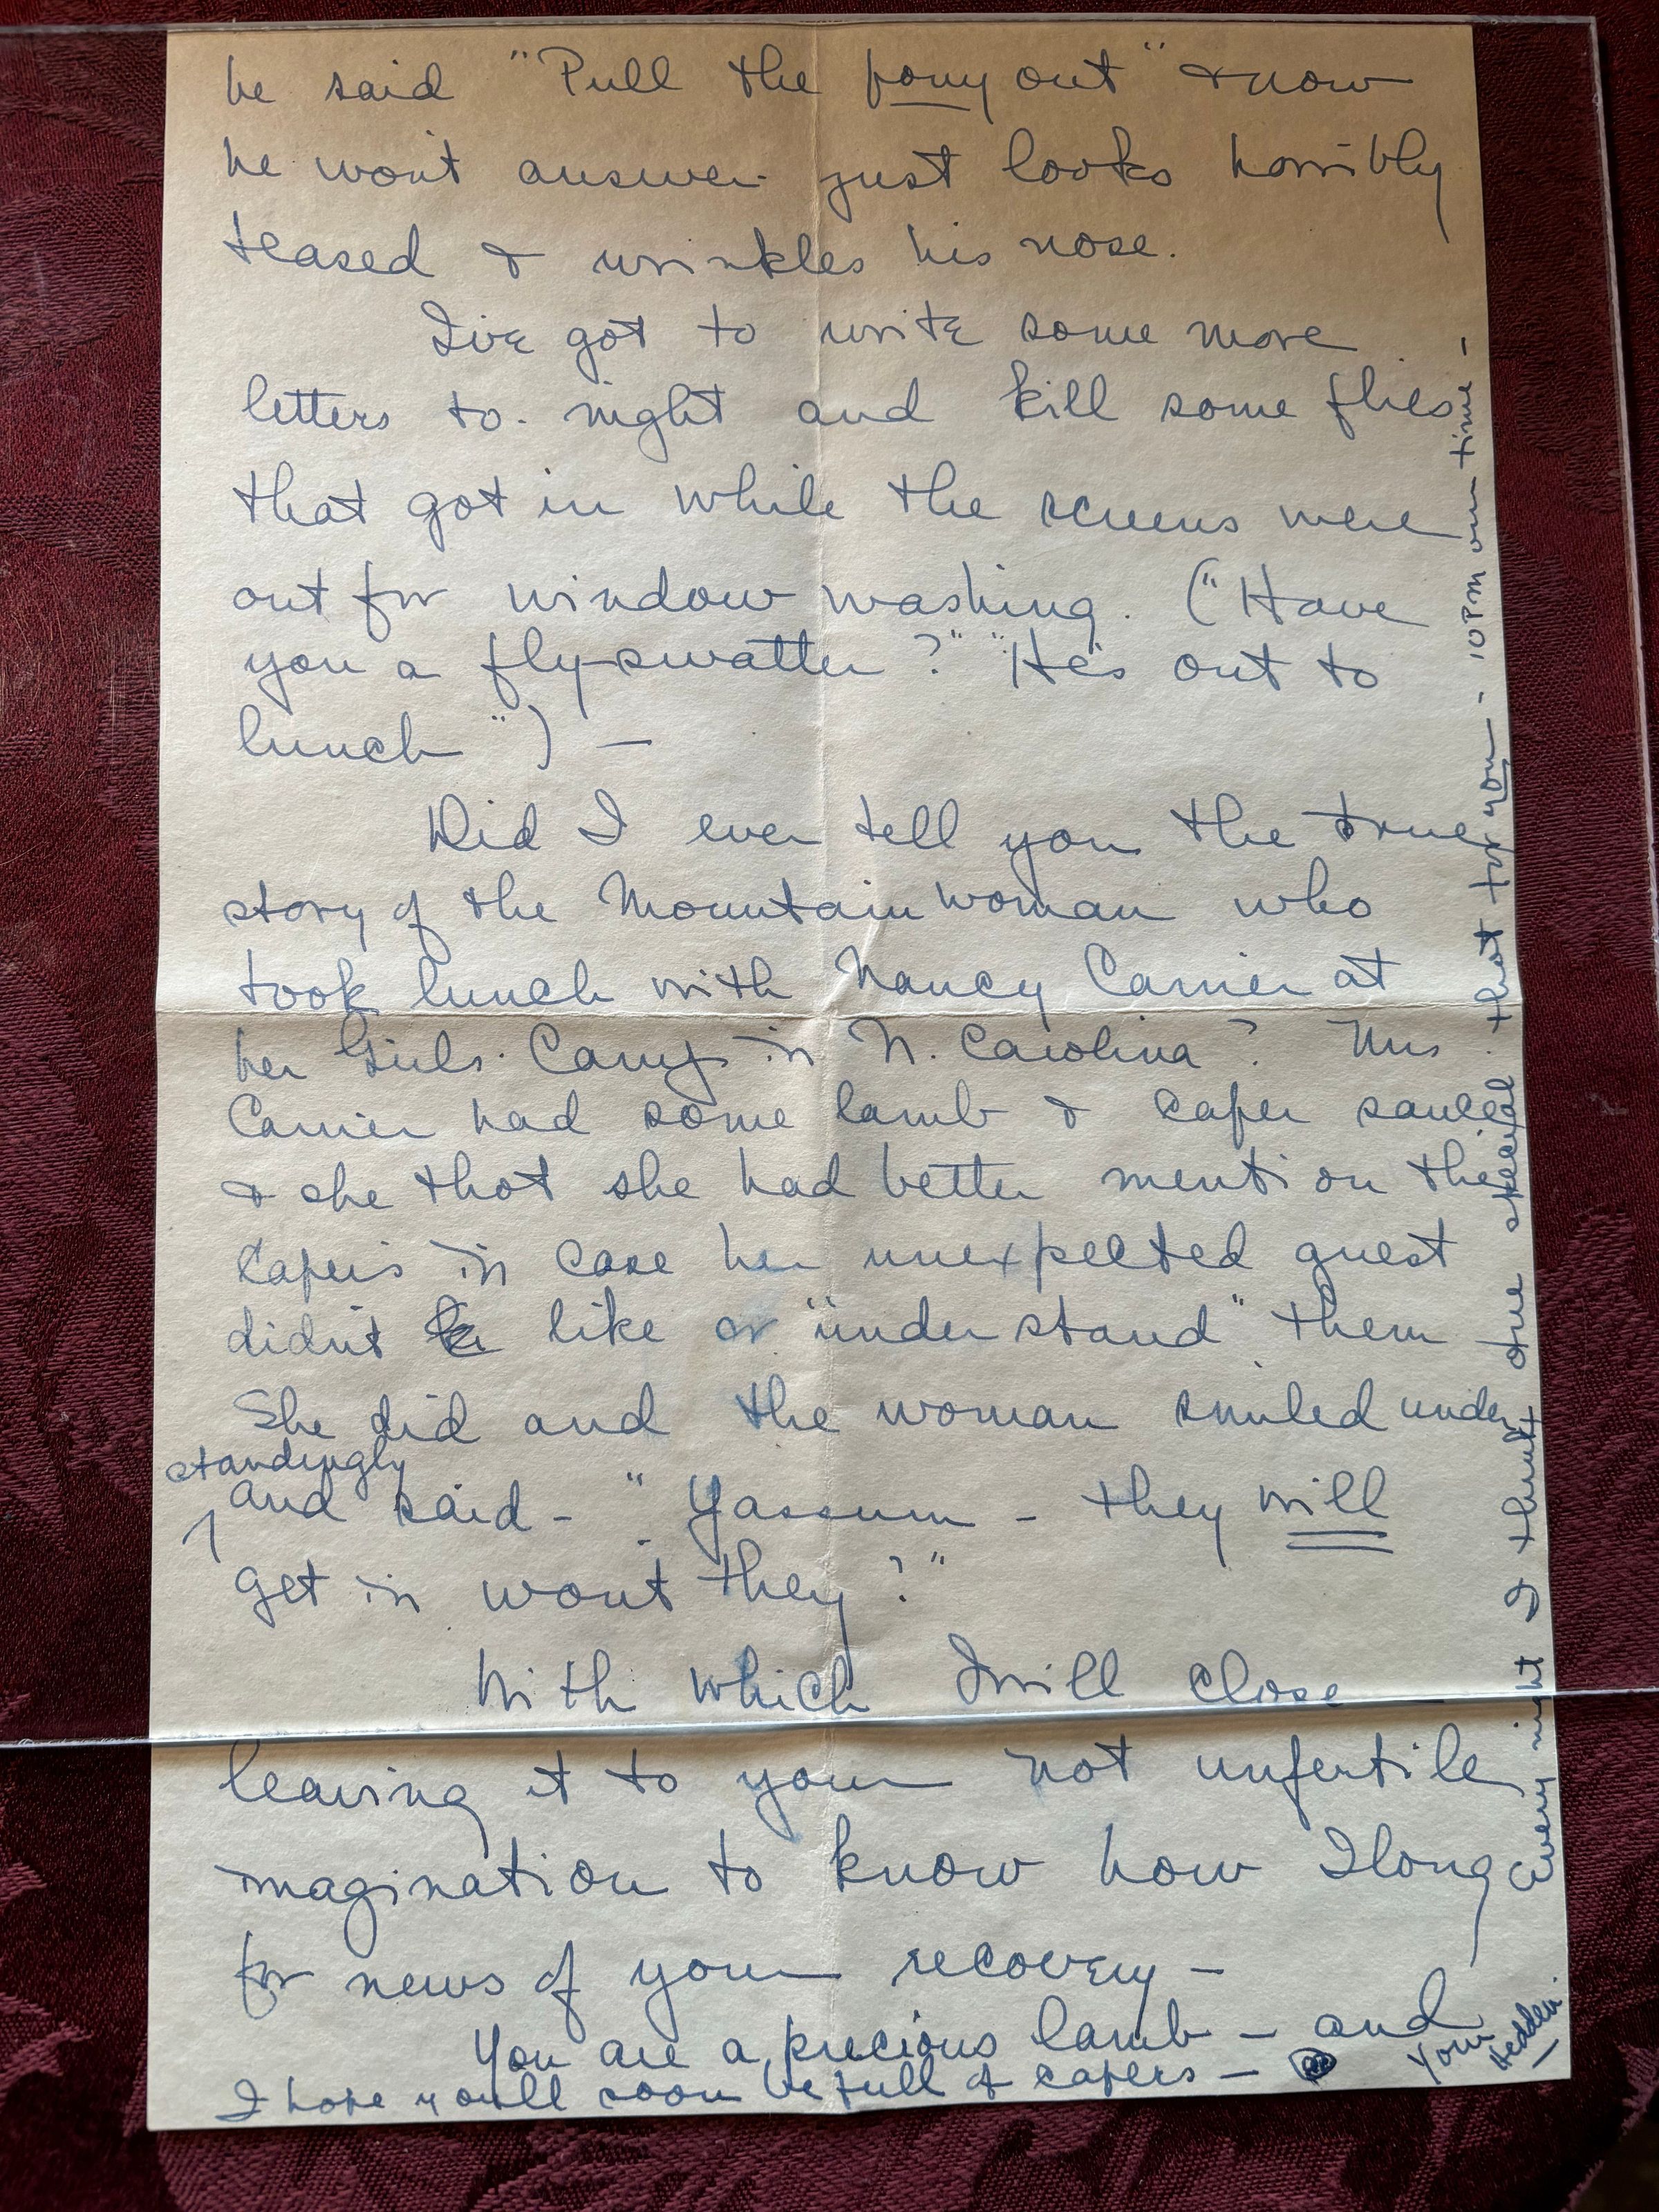 he said "Pull the pony out" & now
he wont answer just looks horribly
teased & wrinkles his nose.
I've got to write some more
letters to-night and kill some flies
that got in while the screens were
out for window washing. ("Have
you a fly-swatter?" "He's out to
lunch") –
Did I ever tell you the true
story of the Mountain woman who
took lunch with Nancy Carrier at
her Girls Camp in N. Carolina? Mrs.
Carrier had some lamb & caper sauce
& she thot she had better mention the
capers in case her unexpected guest
didn't like or "understand" them
She did and the woman smiled under
standingly
and said – "Yassum – they will
get in wont they?"
With which I will close –
leaving it to your not unfertile
imagination to know how I long
for news of your recovery –
You are a precious lamb – and
I hope youll soon be full of capers –
Your
Hedden.
Every night I think one special thot for you - 10 PM our time -